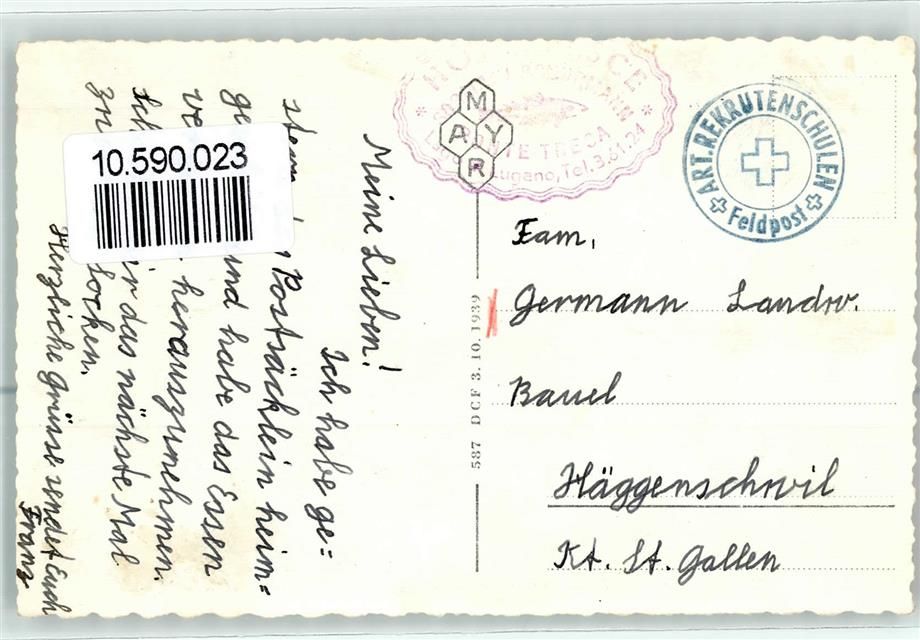 Meine Lieben!
Ich habe ge=
stern Postsäcklein heim=
und habe das Essen
herauszunehmen.
das nächste Mal
Socken.
Herzliche Grüsse sendet Euch
Franz
10.590.023
MAYR
PONTE TRESA
Lugano, Tel. 3.61.24
ART. REKRUTENSCHULEN
Feldpost
587 DCF 3.10.1939
Fam.
Germann Landw.
Bauel
Häggenschwil
Kt. St. Gallen